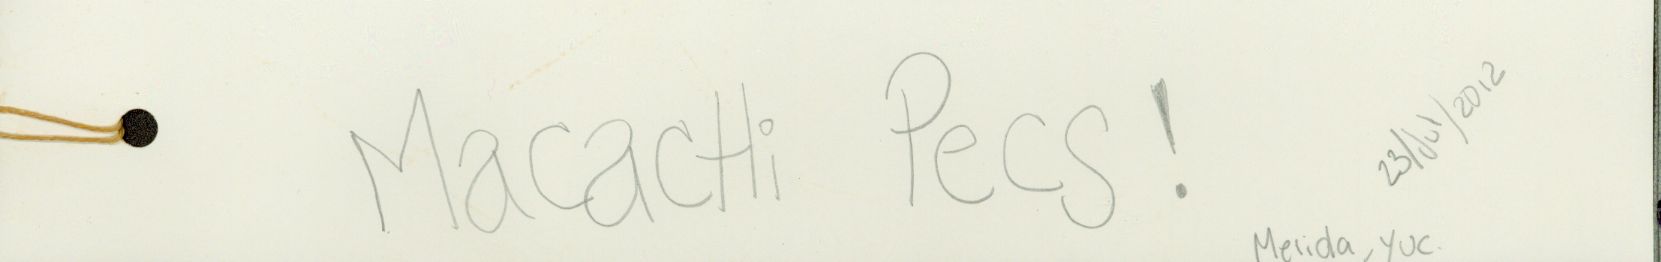 MacacHi Pecs!
23/Jul/2012
Merida, Yuc.